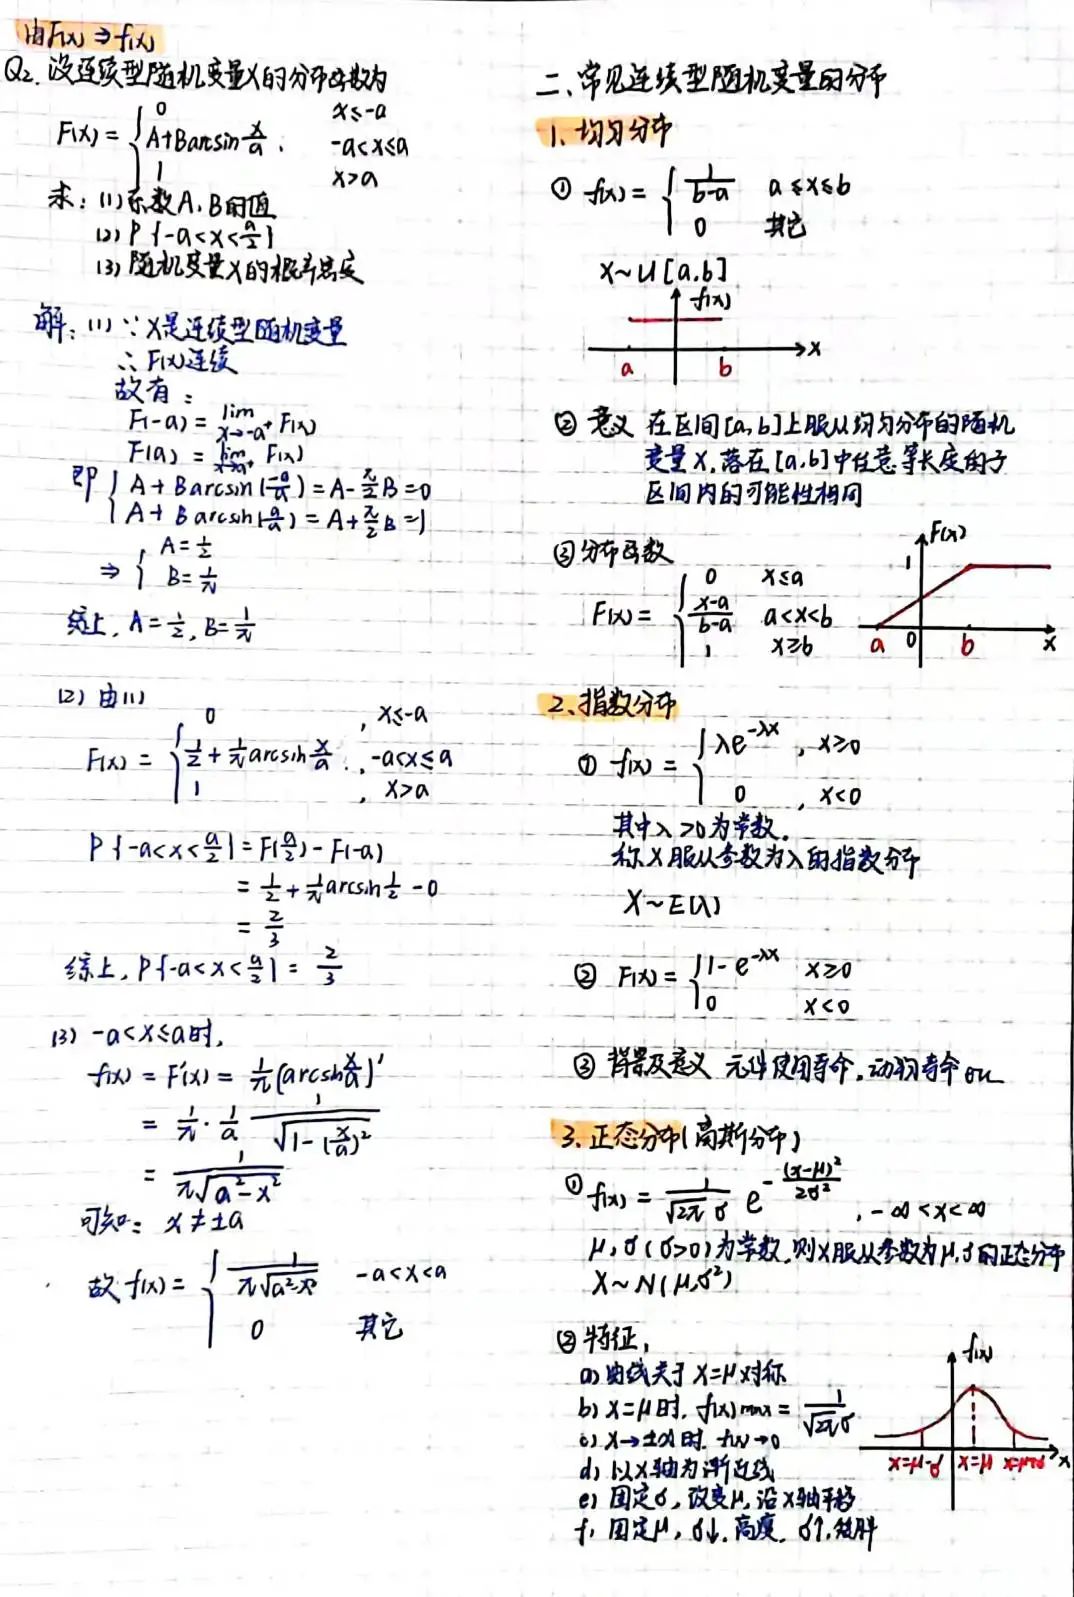 由F(x)⇒f(x)
Q2. 设连续型随机变量X的分布函数为
F(x) = { 0 x≤-a
A+Barcsin x/a , -a<x≤a
1 x>a
求: (1) 系数A、B的值
(2) P{-a<x<a/2}
(3) 随机变量X的概率密度
解: (1) ∵ X是连续型随机变量
∴ F(x)连续
故有:
F(-a) = lim x→-a⁺ F(x)
F(a) = lim x→a⁺ F(x)
即 { A + B arcsin(-a/a) = A - π/2 B = 0
A + B arcsin(a/a) = A + π/2 B = 1
⇒ { A = 1/2
B = 1/π
综上, A = 1/2, B = 1/π
(2) 由(1)
F(x) = { 0 , x≤-a
1/2 + 1/π arcsin x/a , -a<x≤a
1 , x>a
P{-a<x<a/2} = F(a/2) - F(-a)
= 1/2 + 1/π arcsin 1/2 - 0
= 2/3
综上, P{-a<x<a/2} = 2/3
(3) -a<x≤a时,
f(x) = F'(x) = 1/π (arcsin x/a)'
= 1/π · 1/a 1/√(1-(x/a)²)
= 1/(π√(a²-x²))
可知: x≠±a
故 f(x) = { 1/(π√(a²-x²)) -a<x<a
0 其它
二、常见连续型随机变量的分布
1、均匀分布
① f(x) = { 1/(b-a) a≤x≤b
0 其它
X~U[a,b]
f(x)
x
a b
② 意义 在区间[a,b]上服从均匀分布的随机
变量X,落在[a,b]中任意等长度的子
区间内的可能性相同
③ 分布函数
F(x) = { 0 x≤a
(x-a)/(b-a) a<x<b
1 x≥b
F(x)
1
a 0 b x
2、指数分布
① f(x) = { λe^(-λx) , x≥0
0 , x<0
其中λ>0为常数.
称X服从参数为λ的指数分布
X~E(λ)
② F(x) = { 1-e^(-λx) x≥0
0 x<0
③ 背景及意义 元件使用寿命,动物寿命
3、正态分布(高斯分布)
① f(x) = 1/(√2π σ) e^(-(x-μ)²/2σ²) , -∞<x<∞
μ,σ(σ>0)为常数,则X服从参数为μ,σ的正态分布
X~N(μ,σ²)
② 特征,
a) 曲线关于X=μ对称
b) X=μ时, f(x)max = 1/(√2π σ)
c) X→±∞时. f(x)→0
d) 以X轴为渐近线
e) 固定σ, 改变μ, 沿X轴平移
f) 固定μ, σ↓, 高瘦. σ↑, 矮胖
f(x)
x=μ-σ x=μ x=μ+σ x